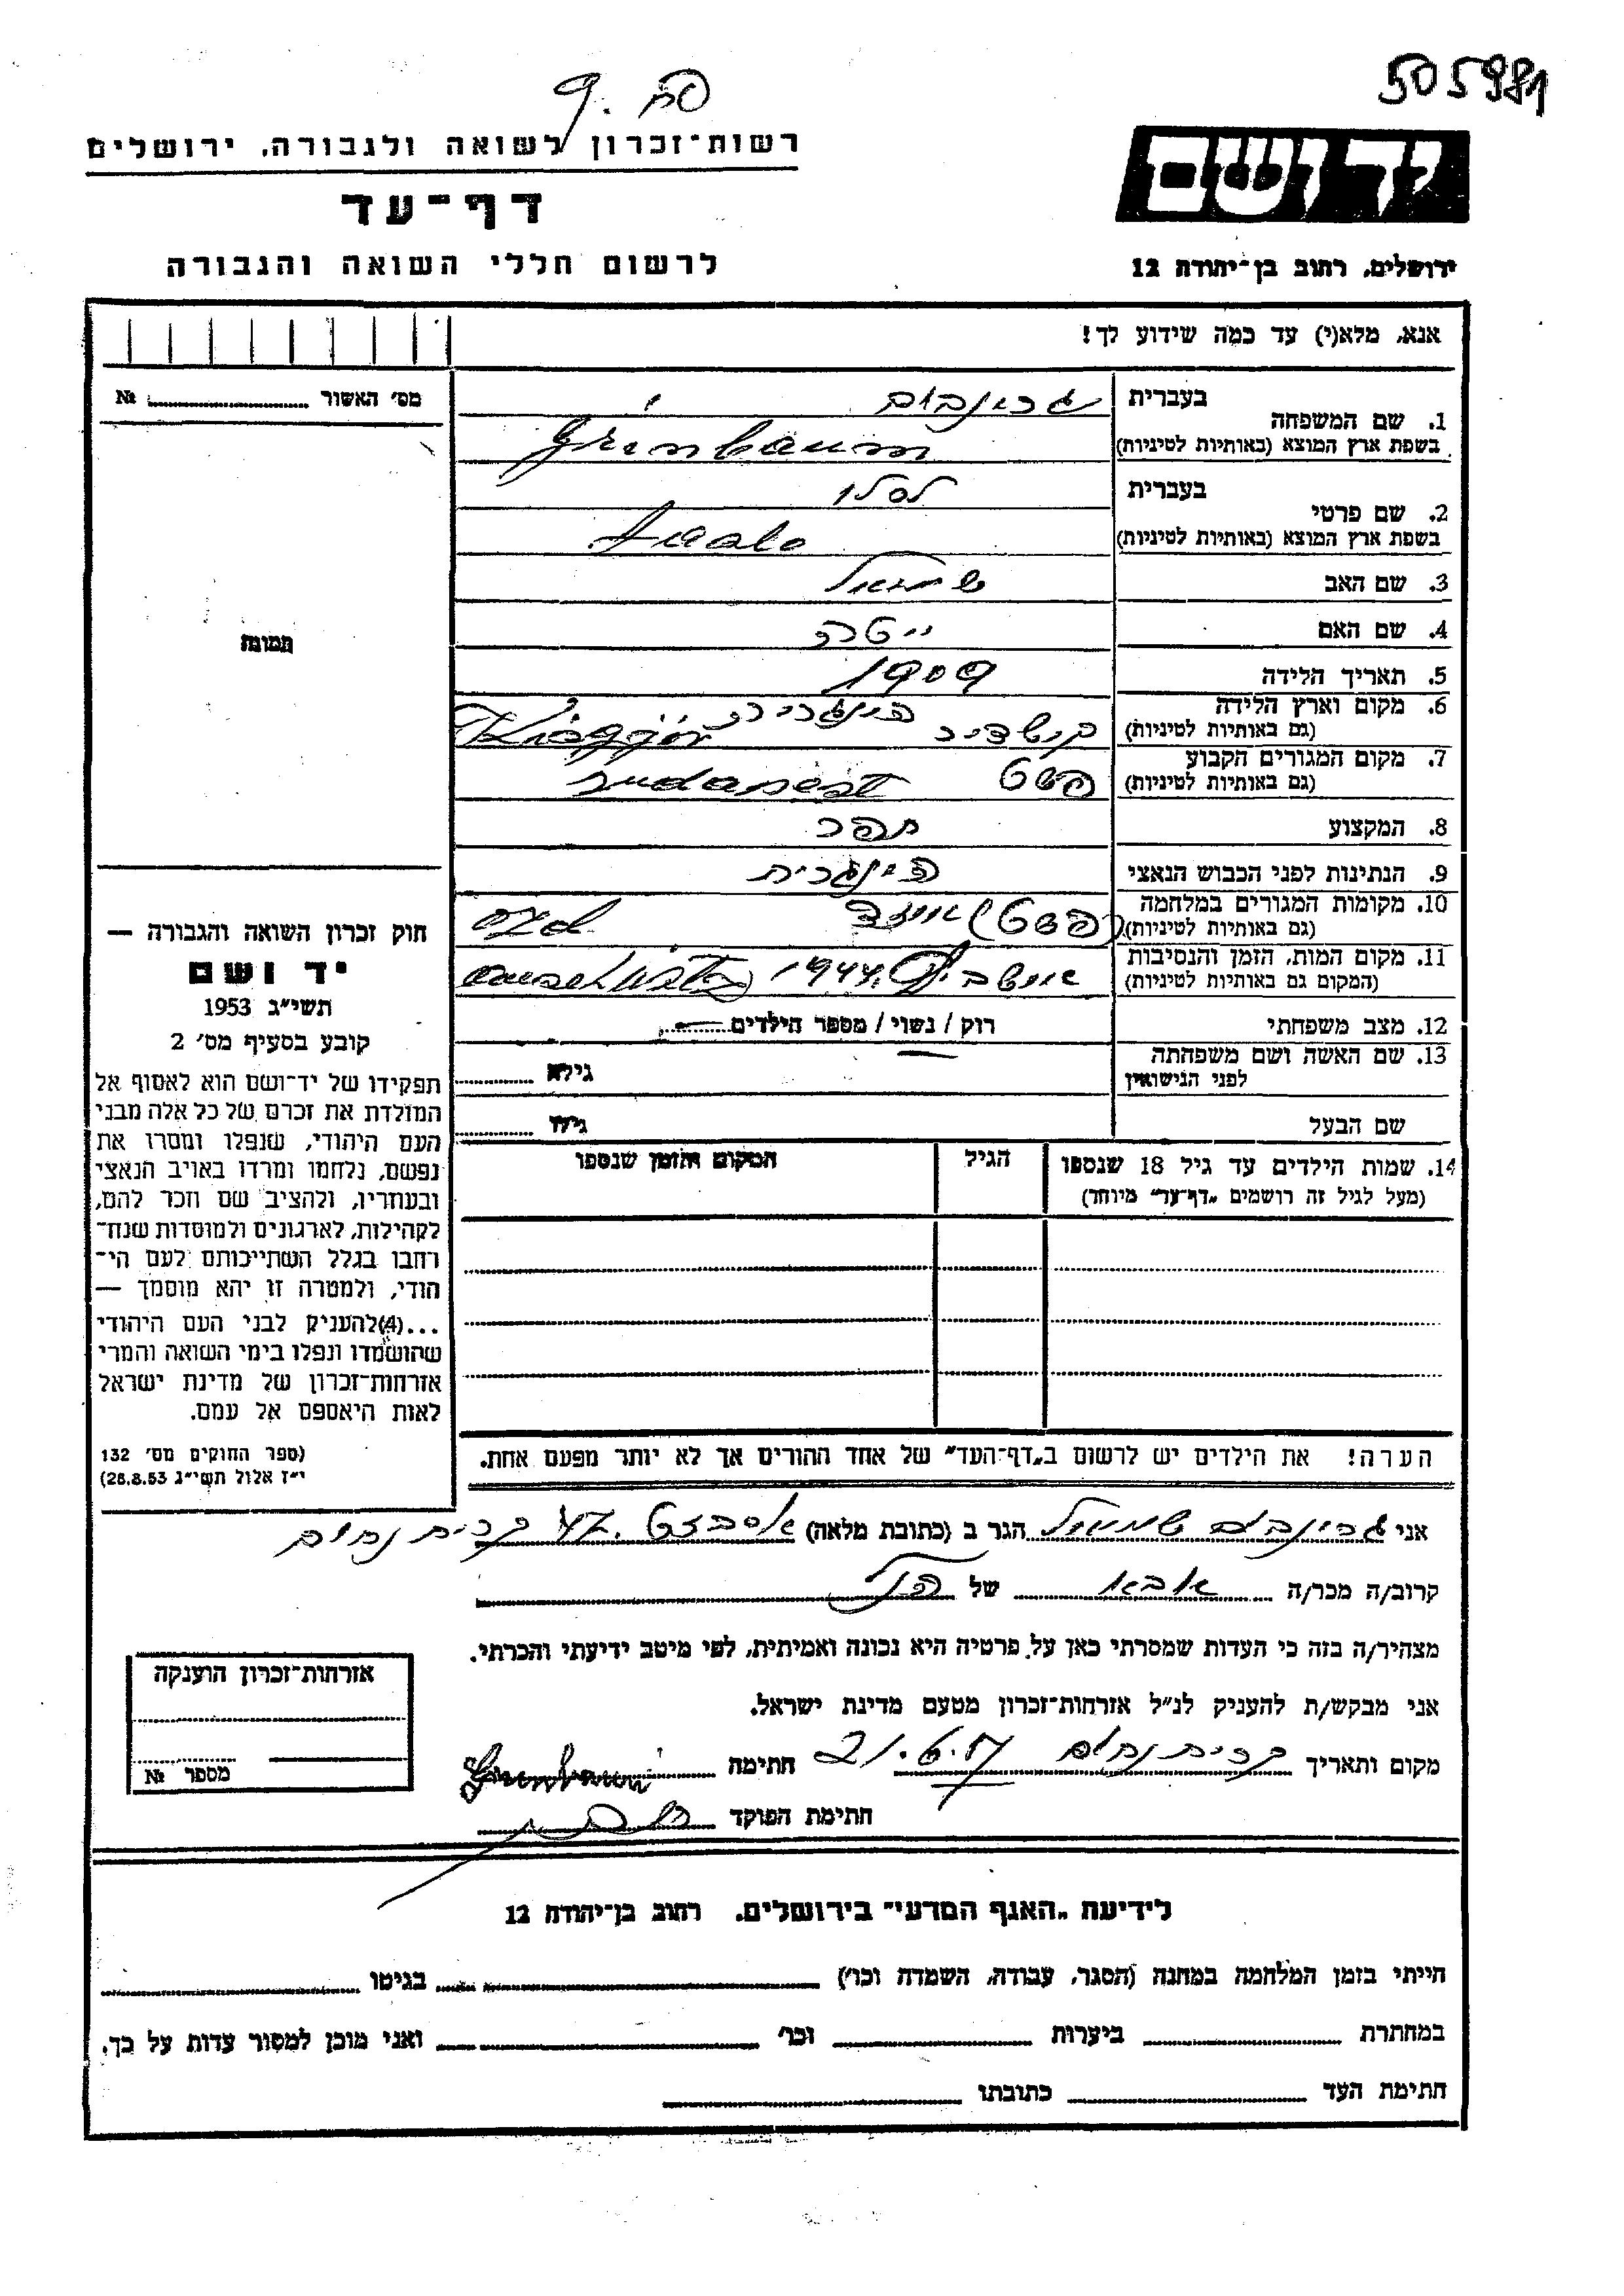 505981
רשות־זכרון לשואה ולגבורה, ירושלים
יד ושם
דף־עד
לרשום חללי השואה והגבורה
ירושלים, רחוב בן־יהודה 12
אנא, מלא(י) עד כמה שידוע לך!
מס׳ האשור № 
1. שם המשפחה
בעברית גרינבוים
בשפת ארץ המוצא (באותיות לטיניות) Grünbaum
2. שם פרטי
בעברית לסלו
בשפת ארץ המוצא (באותיות לטיניות)
3. שם האב שמואל
4. שם האם
5. תאריך הלידה 1909
6. מקום וארץ הלידה הונגריה
(גם באותיות לטיניות)
7. מקום המגורים הקבוע פשט Budapest
(גם באותיות לטיניות)
8. המקצוע תפר
9. הנתינות לפני הכבוש הנאצי הונגרית
10. מקומות המגורים במלחמה (פשט) אוזד ozd
(גם באותיות לטיניות)
11. מקום המות, הזמן והנסיבות 1944
(המקום גם באותיות לטיניות)
12. מצב משפחתי רוק / נשוי / מספר הילדים
13. שם האשה ושם משפחתה גילה
לפני הנישואין
שם הבעל גילו
14. שמות הילדים עד גיל 18 שנספו הגיל המקום והזמן שנספו
(מעל לגיל זה רושמים „דף־עד״ מיוחד)
תמונה
חוק זכרון השואה והגבורה —
יד ושם
תשי״ג 1953
קובע בסעיף מס׳ 2
תפקידו של יד־ושם הוא לאסוף אל
המולדת את זכרם של כל אלה מבני
העם היהודי, שנפלו ומסרו את
נפשם, נלחמו ומרדו באויב הנאצי
ובעוזריו, ולהציב שם וזכר להם,
לקהילות, לארגונים ולמוסדות שנח־
רבו בגלל השתייכותם לעם הי־
הודי, ולמטרה זו יהא מוסמך —
...(4)להעניק לבני העם היהודי
שהושמדו ונפלו בימי השואה והמרי
אזרחות־זכרון של מדינת ישראל
לאות היאספם אל עמם.
(ספר החוקים מס׳ 132
י״ז אלול תשי״ג 28.8.53)
הערה! את הילדים יש לרשום ב„דף־העד״ של אחד ההורים אך לא יותר מפעם אחת.
אני גרינבוים שמואל הגר ב (כתובת מלאה) 47 קרית נחום
קרוב/ה מכר/ה אבא של הנ״ל
מצהיר/ה בזה כי העדות שמסרתי כאן על פרטיה היא נכונה ואמיתית, לפי מיטב ידיעתי והכרתי.
אני מבקש/ת להעניק לנ״ל אזרחות־זכרון מטעם מדינת ישראל.
מקום ותאריך קרית נחום 21.6.57 חתימה Grünbaum
חתימת הפוקד
אזרחות־זכרון הוענקה
מספר №
לידיעת „האגף המדעי״ בירושלים, רחוב בן־יהודה 12
הייתי בזמן המלחמה במחנה (הסגר, עבודה, השמדה וכו׳) בגיטו
במחתרת ביערות וכו׳ ואני מוכן למסור עדות על כך.
חתימת העד כתובתו